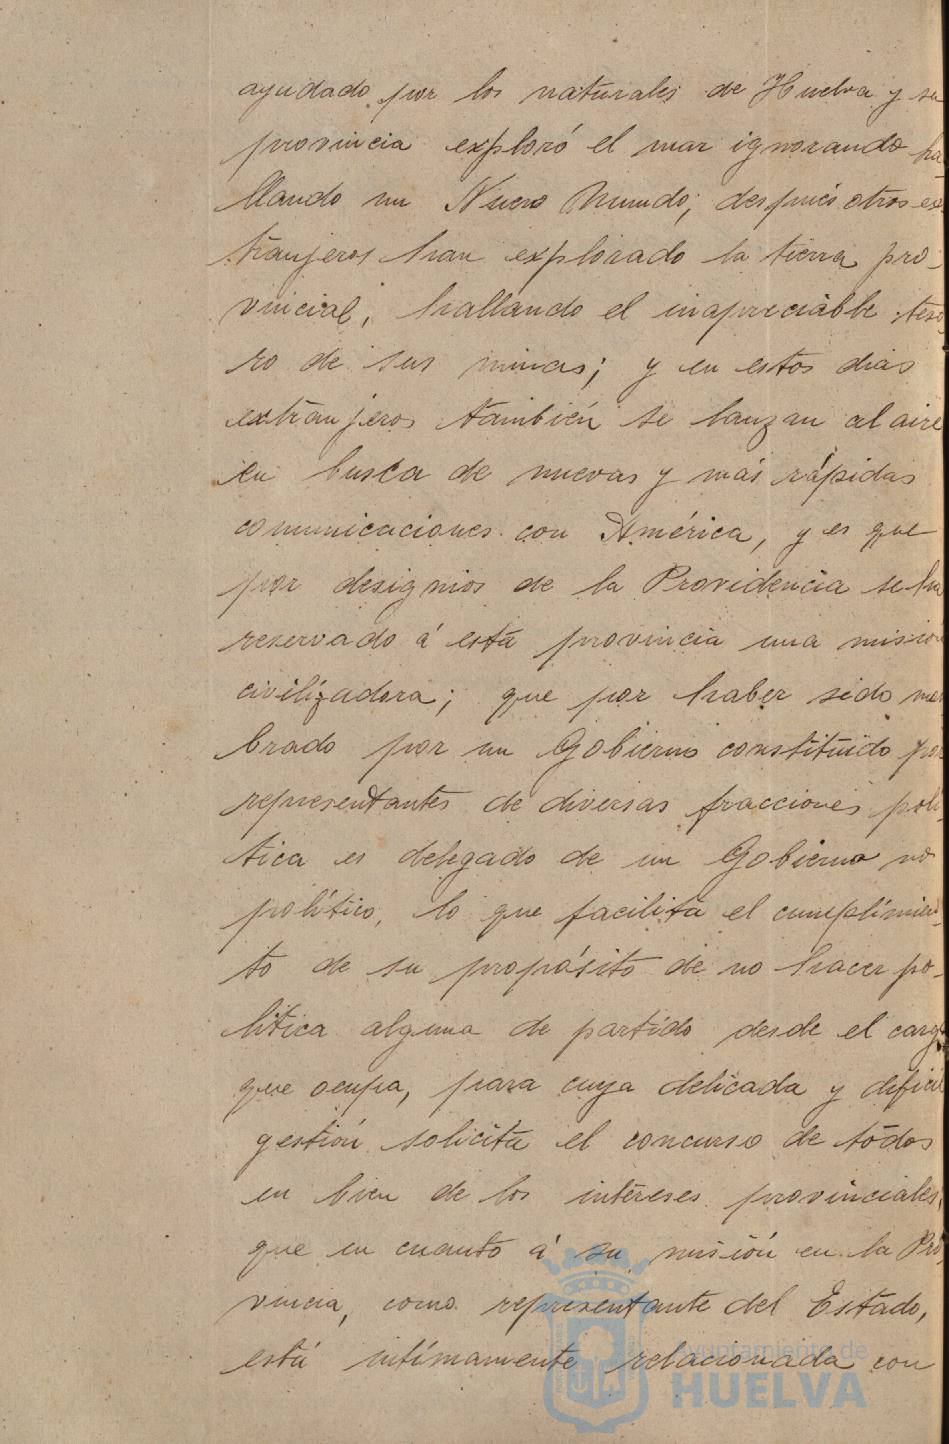 ayudado por los naturales de Huelva y su
provincia exploró el mar ignorando ha-
llando un Nuevo Mundo; después otros ex
tranjeros han explorado la tierra pro-
vincial, hallando el inapreciable teso
ro de sus minas; y en estos dias
extranjeros también se lanzan al aire
en busca de nuevas y más rápidas
comunicaciones con América, y es que
por designios de la Providencia se ha
reservado á esta provincia una mision
civilizadora; que por haber sido nom
brado por un Gobierno constituido por
representantes de diversas fracciones polí-
tica es delegado de un Gobierno no
político, lo que facilita el cumplimien-
to de su propósito de no hacer po-
lítica alguna de partido desde el cargo
que ocupa, para cuya delicada y dificil
gestión solicita el concurso de todos
en bien de los intereses provinciales,
que en cuanto á su misión en la Pro
vincia, como representante del Estado,
está intimamente relacionada con
Ayuntamiento de
HUELVA